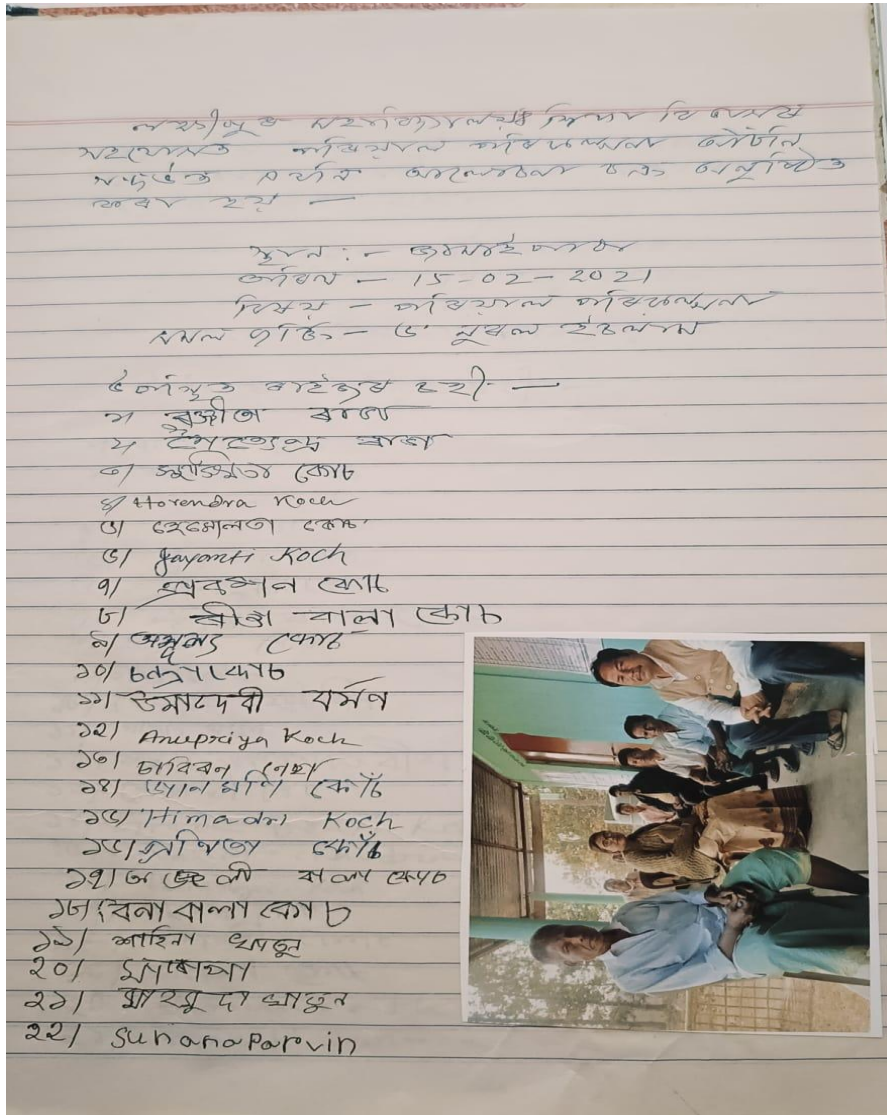 লক্ষীপুৰ মহাবিদ্যালয়ৰ শিক্ষা বিভাগৰ
সহযোগত পৰিয়াল পৰিকল্পনা আঁচনি
সন্দৰ্ভত এখনি আলোচনা চক্ৰ অনুষ্ঠিত
কৰা হয় —
স্থান :-
তাৰিখ - 15-02-2021
বিষয় - পৰিয়াল পৰিকল্পনা
সমল ব্যক্তি - ড° নুৰুল ইছলাম
উপস্থিত ৰাইজৰ চহী: —
১। ৰঞ্জীতা ৰাভা
২। ৰাভা
৩। কোচ
৪। Horendra Koch
৫। হেমোলতা কোচ
৬। Jayanti Koch
৭। কোচ
৮। বালা কোচ
৯। অমূল্য কোচ
১০। চন্দ্ৰা কোচ
১১। উমাদেবী বৰ্মণ
১২। Anupriya Koch
১৩। নেছা
১৪। জোনমণি কোঁচ
১৫। Himadri Koch
১৬। প্ৰণিতা কোঁচ
১৭। অঞ্জলী বালা কোচ
১৮। বেনা বালা কোচ
১৯। শাহিনা খাতুন
২০।
২১। মাহমুদা খাতুন
২২। Sunana Parvin